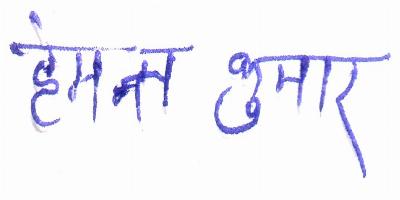 हेमन्त कुमार